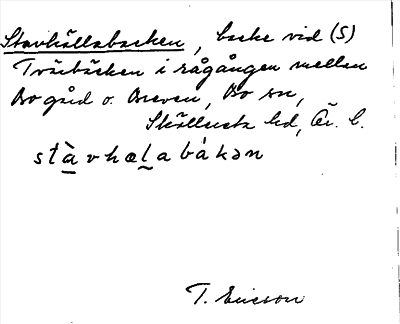 Stavhällabacken, backe vid (S)
Tvärbäcken i rågången mellan
Bo gård o. Breven, Bo sn,
Sköllersta hd, Ör. l.
stàvhælabákən
T. Ericson